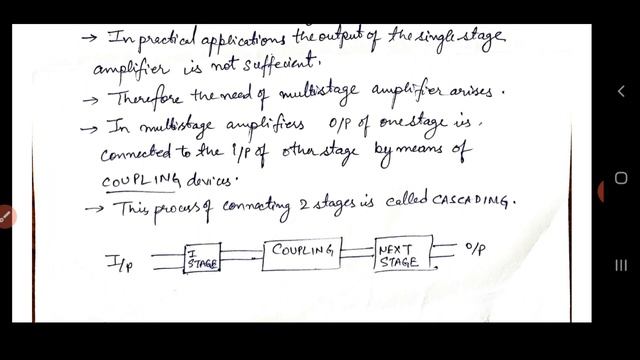 → In practical applications the output of the single stage
amplifier is not suffecient.
→ Therefore the need of multistage amplifier arises.
→ In multistage amplifiers O/P of one stage is
connected to the i/P of other stage by means of
COUPLING devices.
→ This process of connecting 2 stages is called CASCADING.
I/p
I
STAGE
COUPLING
NEXT
STAGE
O/P